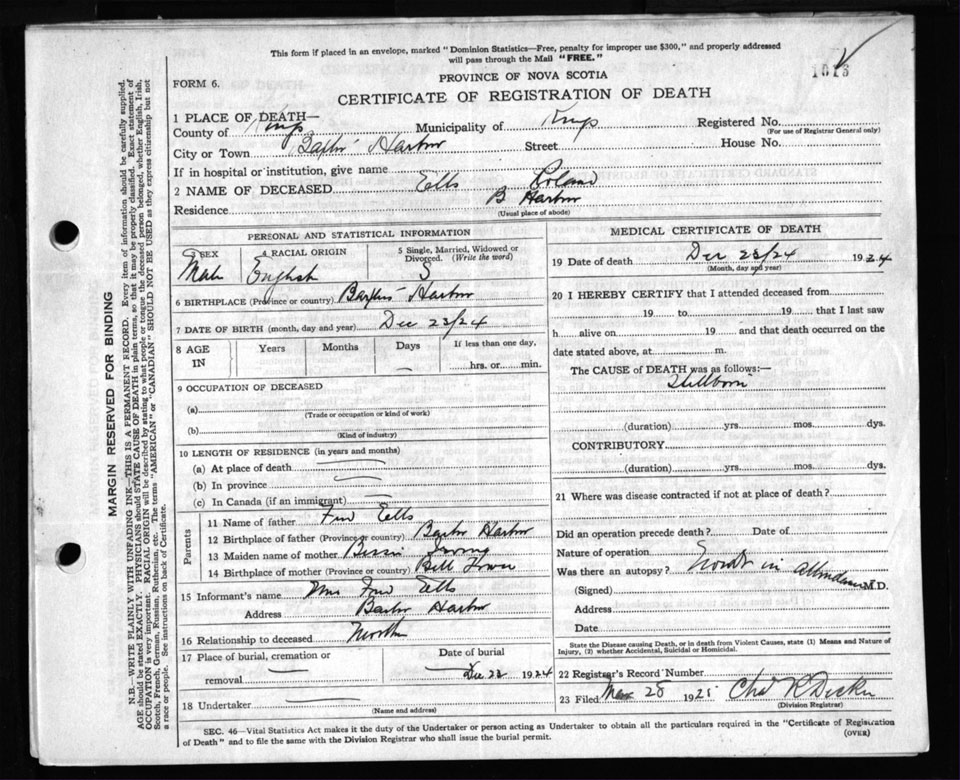 This form if placed in an envelope, marked "Dominion Statistics—Free, penalty for improper use $300," and properly addressed
will pass through the Mail "FREE."
1013
PROVINCE OF NOVA SCOTIA
FORM 6.
CERTIFICATE OF REGISTRATION OF DEATH
1 PLACE OF DEATH—
County of Kings Municipality of Kings Registered No.
(For use of Registrar General only)
City or Town Harbor Street House No.
If in hospital or institution, give name
2 NAME OF DECEASED Ells Roland
Residence B Harbor
(Usual place of abode)
PERSONAL AND STATISTICAL INFORMATION
3 SEX 4 RACIAL ORIGIN 5 Single, Married, Widowed or Divorced. (Write the word)
Male English S
6 BIRTHPLACE (Province or country) Harbor
7 DATE OF BIRTH (month, day and year) Dec 23/24
8 AGE IN Years Months Days If less than one day, hrs. or min.
9 OCCUPATION OF DECEASED
(a)
(Trade or occupation or kind of work)
(b)
(Kind of industry)
10 LENGTH OF RESIDENCE (in years and months)
(a) At place of death
(b) In province
(c) In Canada (if an immigrant)
Parents
11 Name of father Eells
12 Birthplace of father (Province or country) Harbor
13 Maiden name of mother Bessie Irving
14 Birthplace of mother (Province or country) Bill Town
15 Informant's name Mrs Ells
Address Harbor
16 Relationship to deceased Mother
17 Place of burial, cremation or removal Date of burial
Dec 23 1924
18 Undertaker
(Name and address)
MEDICAL CERTIFICATE OF DEATH
19 Date of death Dec 23/24 1924
(Month, day and year)
20 I HEREBY CERTIFY that I attended deceased from
19 to 19 that I last saw
h alive on 19 and that death occurred on the
date stated above, at m.
The CAUSE of DEATH was as follows:—
Stillborn
(duration) yrs. mos. dys.
CONTRIBUTORY
(duration) yrs. mos. dys.
21 Where was disease contracted if not at place of death?
Did an operation precede death? Date of
Nature of operation
Was there an autopsy? No Dr in attendance
(Signed) M.D.
Address
Date
State the Disease causing Death, or in death from Violent Causes, state (1) Means and Nature of
Injury, (2) whether Accidental, Suicidal or Homicidal.
22 Registrar's Record Number
23 Filed 28 1925 Chas R Decker
(Division Registrar)
SEC. 46—Vital Statistics Act makes it the duty of the Undertaker or person acting as Undertaker to obtain all the particulars required in the "Certificate of Registration
of Death" and to file the same with the Division Registrar who shall issue the burial permit.
(OVER)
MARGIN RESERVED FOR BINDING
N.B.—WRITE PLAINLY WITH UNFADING INK—THIS IS A PERMANENT RECORD. Every item of information should be carefully supplied.
AGE should be stated EXACTLY. PHYSICIANS should STATE CAUSE OF DEATH in plain terms, so that it may be properly classified. Exact statement of
OCCUPATION is very important. RACIAL ORIGIN will be described by stating to what people or tongue the deceased person belonged, whether English, Irish,
Scotch, French, German, Russian, Ruthenian, etc. The terms "AMERICAN" or "CANADIAN" SHOULD NOT BE USED as they express citizenship but not
a race or people. See instructions on back of Certificate.